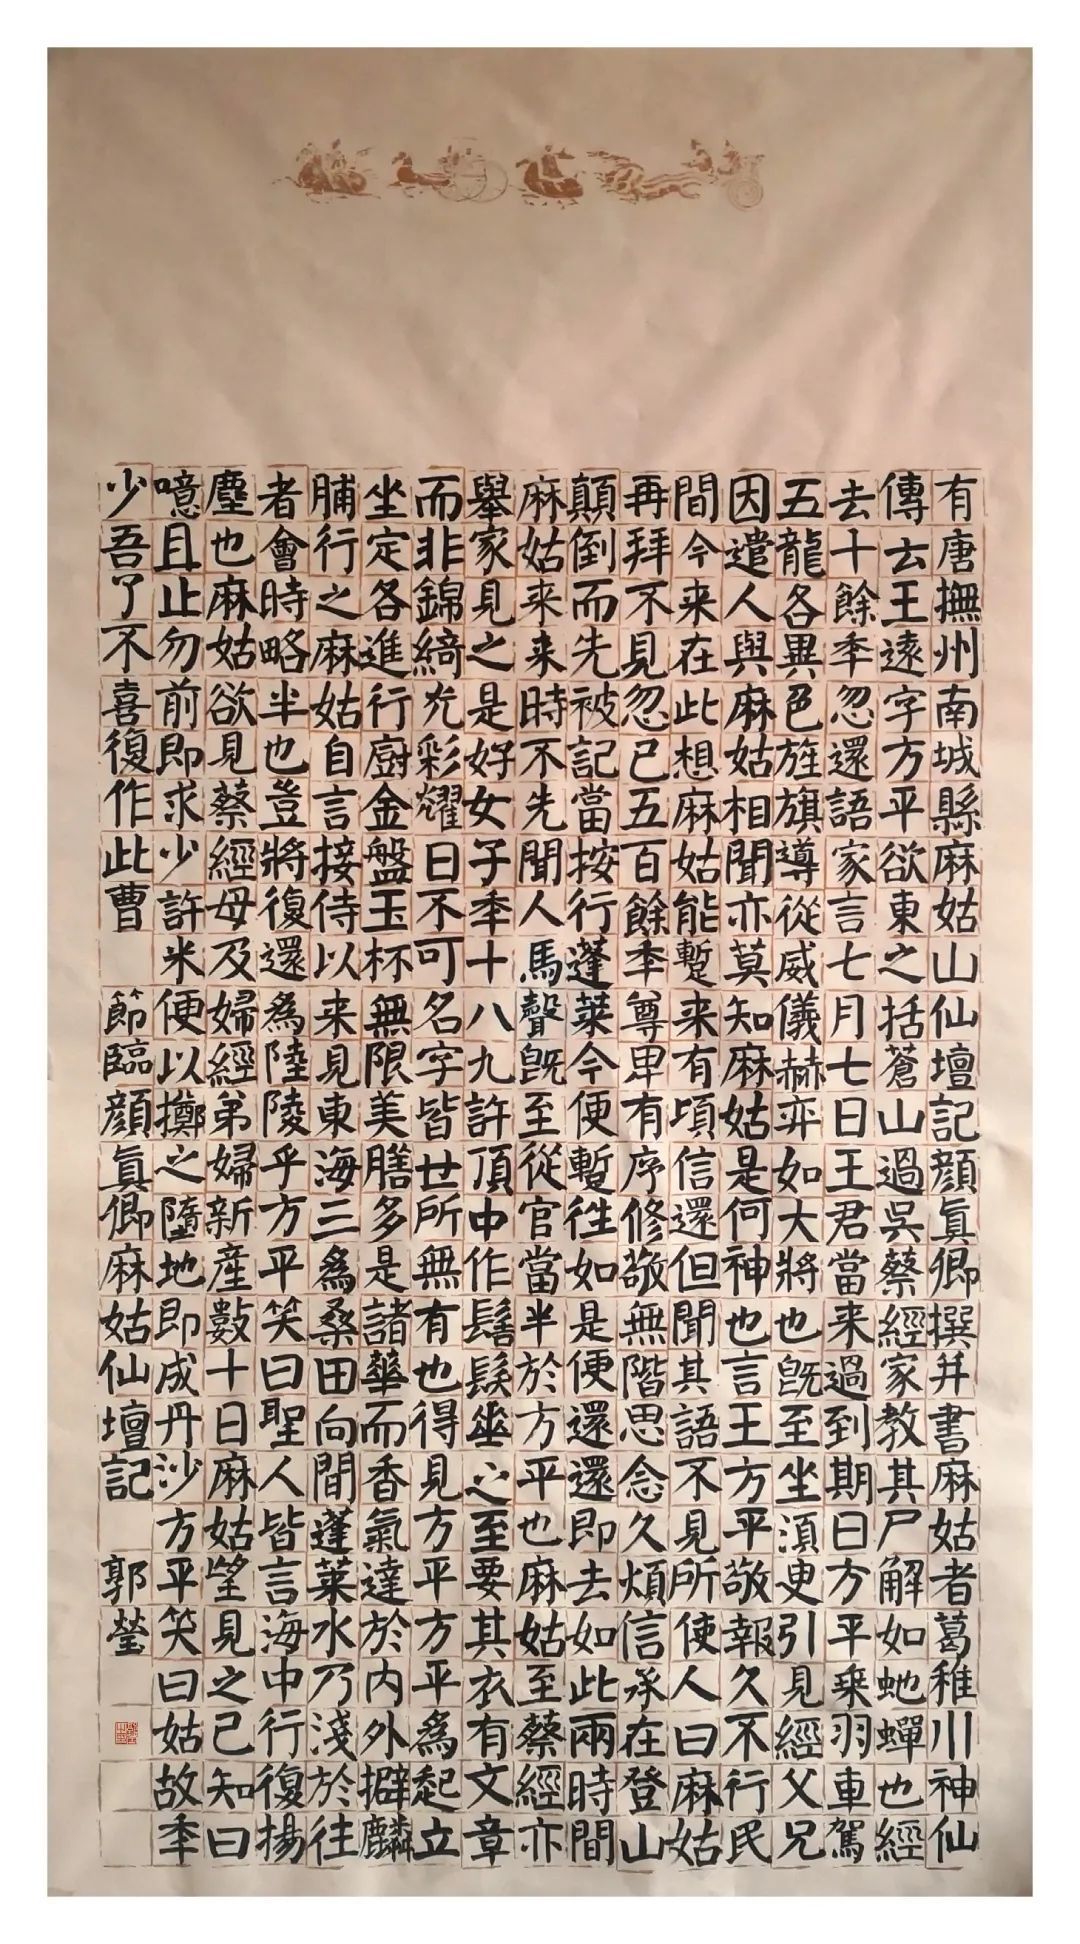 有唐撫州南城縣麻姑山仙壇記顔真卿撰并書麻姑者葛稚川神仙
傳云王遠字方平欲東之括蒼山過吳蔡經家教其尸解如虵蟬也經
去十餘秊忽還語家言七月七日王君當来過到期日方平乗羽車駕
五龍各異色旌旗導從威儀赫弈如大將也既至坐湏臾引見經父兄
因遣人與麻姑相聞亦莫知麻姑是何神也言王方平敬報久不行民
間今来在此想麻姑能蹔来有頃信還但聞其語不見所使人曰麻姑
再拜不見忽已五百餘秊尊卑有序修敬無階思念久煩信承在登山
顛倒而先被記當按行蓬萊今便蹔徃如是便還還即去如此兩時間
麻姑来来時不先聞人馬聲既至從官當半於方平也麻姑至蔡經亦
舉家見之是好女子秊十八九許頂中作髻髮垂之至要其衣有文章
而非錦綺光彩耀日不可名字皆世所無有也得見方平方平為起立
坐定各進行厨金盤玉杯無限美膳多是諸華而香氣達於内外擗麟
脯行之麻姑自言接侍以来見東海三為桑田向間蓬萊水乃淺於往
者會時略半也豈將復還為陸陵乎方平笑曰聖人皆言海中行復揚
塵也麻姑欲見蔡經母及婦經弟婦新産數十日麻姑望見之已知曰
噫且止勿前即求少許米便以擲之墮地即成丹沙方平笑曰姑故秊
少吾了不喜復作此曹 節臨顔真卿麻姑仙壇記 郭瑩